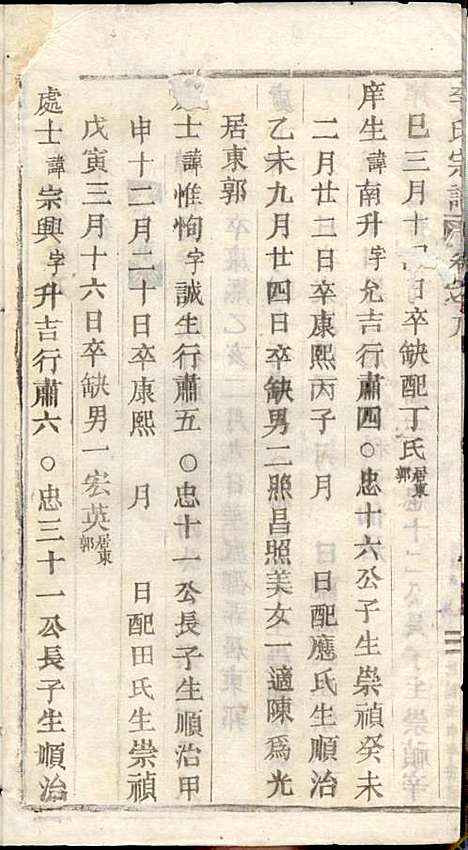 氏宗譜
巳三月十日卒缺配丁氏居東郭
庠生諱南升字允吉行肅四○忠十六公子生崇禎癸未
二月廿二日卒康熙丙子 月 日配應氏生順治
乙未九月廿四日卒缺男二照昌照美女一適陳為光
居東郭
士諱惟恂字誠生行肅五○忠十一公長子生順治甲
申十二月二十日卒康熙 月 日配田氏生崇禎
戊寅三月十六日卒缺男一宏英居東郭
處士諱宗興字升吉行肅六○忠三十一公長子生順治